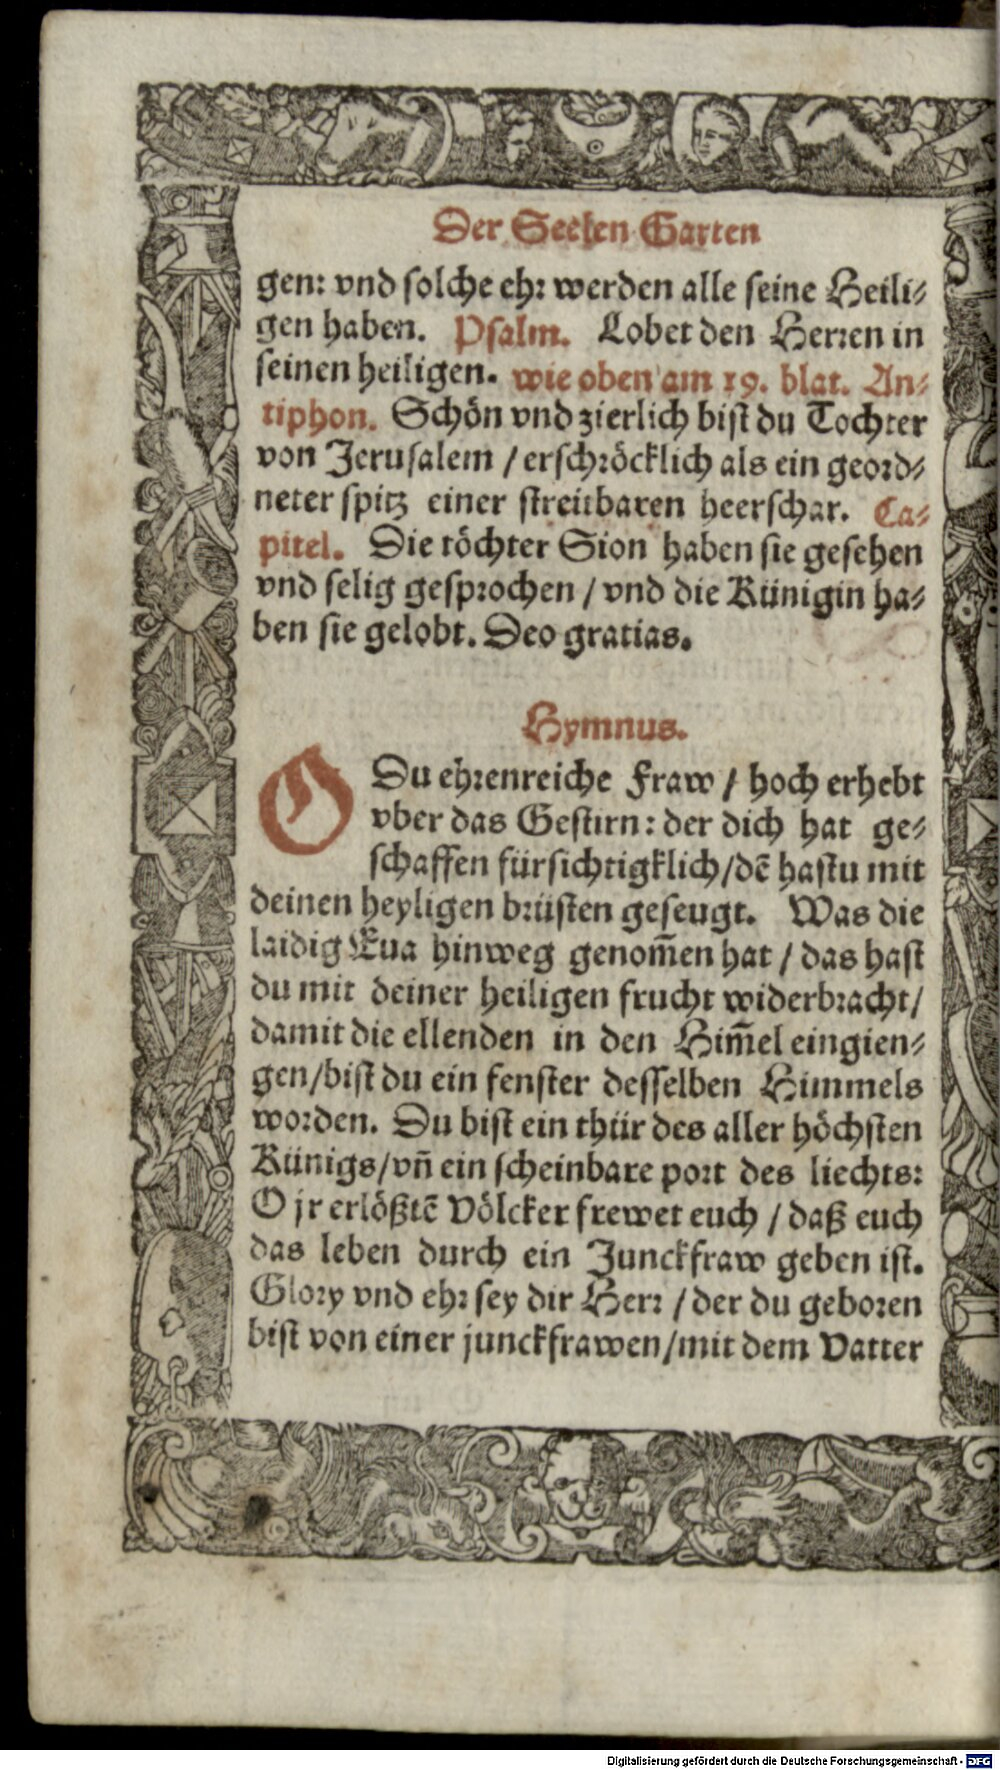 Der Seelen Garten
gen: vnd solche ehr werden alle seine Heili⸗
gen haben. Psalm. Lobet den Herren in
seinen heiligen. wie oben am 19. blat. An⸗
tiphon. Schön vnd zierlich bist du Tochter
von Jerusalem / erschröcklich als ein geord⸗
neter spitz einer streitbaren heerschar. Ca⸗
pitel. Die töchter Sion haben sie gesehen
vnd selig gesprochen / vnd die Künigin ha⸗
ben sie gelobt. Deo gratias.
Hymnus.
O Du ehrenreiche Fraw / hoch erhebt
vber das Gestirn: der dich hat ge⸗
schaffen fürsichtigklich/dē hastu mit
deinen heyligen brüsten geseugt. Was die
laidig Eua hinweg genom̄en hat / das hast
du mit deiner heiligen frucht widerbracht/
damit die ellenden in den Him̄el eingien⸗
gen/bist du ein fenster desselben Himmels
worden. Du bist ein thür des aller höchsten
Künigs/vn̄ ein scheinbare port des liechts:
O jr erlößtē Völcker frewet euch / daß euch
das leben durch ein Junckfraw geben ist.
Glory vnd ehr sey dir Herr / der du geboren
bist von einer junckfrawen/mit dem Vatter
Digitalisierung gefördert durch die Deutsche Forschungsgemeinschaft - DFG